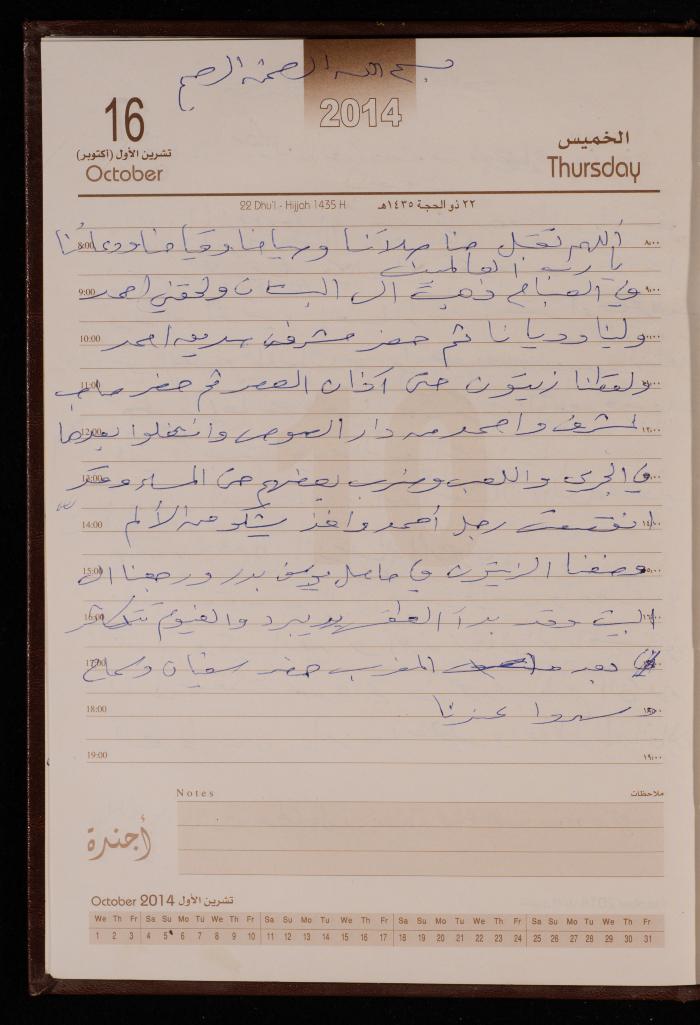 بسم الله الرحمن الرحيم
2014
16
تشرين الأول (أكتوبر)
October
الخميس
Thursday
22 Dhu'l - Hijjah 1435 H
٢٢ ذو الحجة ١٤٣٥هـ
أللهم تقبل منا صلاتنا وصيامنا وقيامنا ودعائنا
8:00 ٨:٠٠
يا رب العالمين
في الصباح ذهبت الى البستان ولحقني احمد
9:00 ٩:٠٠
ولينا وديانا ثم حضر مشرف احمد
10:00 ١٠:٠٠
ولقطنا زيتون حتى آذان العصر ثم حضر
11:00 ١١:٠٠
شرف واحمد من دار العوص وانشغلوا بعدها
12:00 ١٢:٠٠
في الجري واللعب وضرب بعضهم حتى المساء وقد
13:00 ١٣:٠٠
رجل أحمد واخذ يشكو من الألم
14:00 ١٤:٠٠
وضعنا الزيتون في حاصل يوسف بدر ورجعنا الى
15:00 ١٥:٠٠
البيت وقد بدأ الطقس يبرد والغيوم تتكاثر
16:00 ١٦:٠٠
بعد المغرب حضر سفيان وسماح
17:00 ١٧:٠٠
وسهروا عندنا
18:00 ١٨:٠٠
19:00 ١٩:٠٠
Notes ملاحظات
أجندة
October 2014 تشرين الأول
We Th Fr Sa Su Mo Tu We Th Fr Sa Su Mo Tu We Th Fr Sa Su Mo Tu We Th Fr Sa Su Mo Tu We Th Fr
1 2 3 4 5 6 7 8 9 10 11 12 13 14 15 16 17 18 19 20 21 22 23 24 25 26 27 28 29 30 31